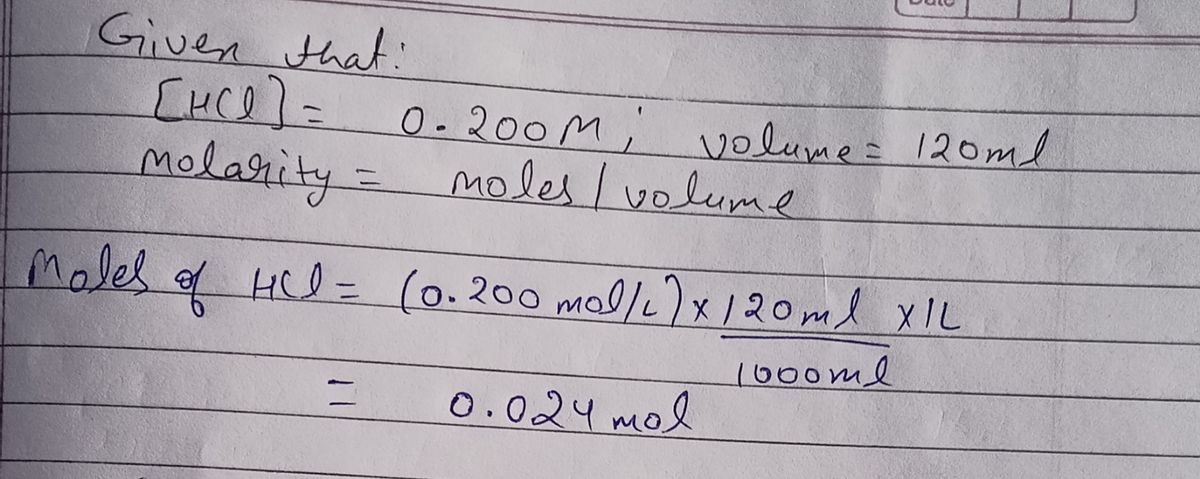 Given that:
[HCl] = 0.200M; volume = 120ml
Molarity = moles / volume
Moles of HCl = (0.200 mol/L) x 120ml x 1L
1000ml
= 0.024 mol